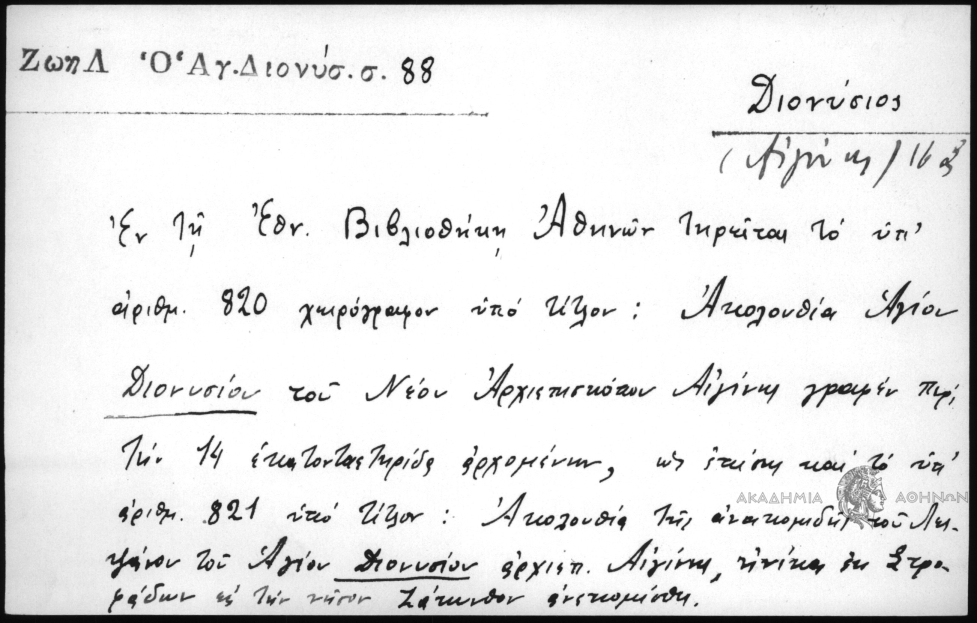 Ζωη Λ Ὁ Ἅγ. Διονύσ. σ. 88
Διονύσιος
(Αἰγίνης) 16
Ἐν τῇ Ἐθν. Βιβλιοθήκῃ Ἀθηνῶν τηρεῖται τὸ ὑπ'
ἀριθμ. 820 χειρόγραφον ὑπό τίτλον : Ἀκολουθία Ἁγίου
Διονυσίου τοῦ Νέου Ἀρχιεπισκόπου Αἰγίνης γραφέν περί
τήν 14 ἑκατονταετηρίδα ἀρχομένην, ὡς ἐπίσης καί τό ὑπ'
ἀριθμ. 821 ὑπό τίτλον : Ἀκολουθία τῆς ἀνακομιδῆς τοῦ Λει-
ψάνου τοῦ Ἁγίου Διονυσίου ἀρχιεπ. Αἰγίνης, ἡνίκα ἐκ Στρο-
φάδων εἰς τήν νῆσον Ζάκυνθον ἀνεκομίσθη.
ΑΚΑΔΗΜΙΑ ΑΘΗΝΩΝ